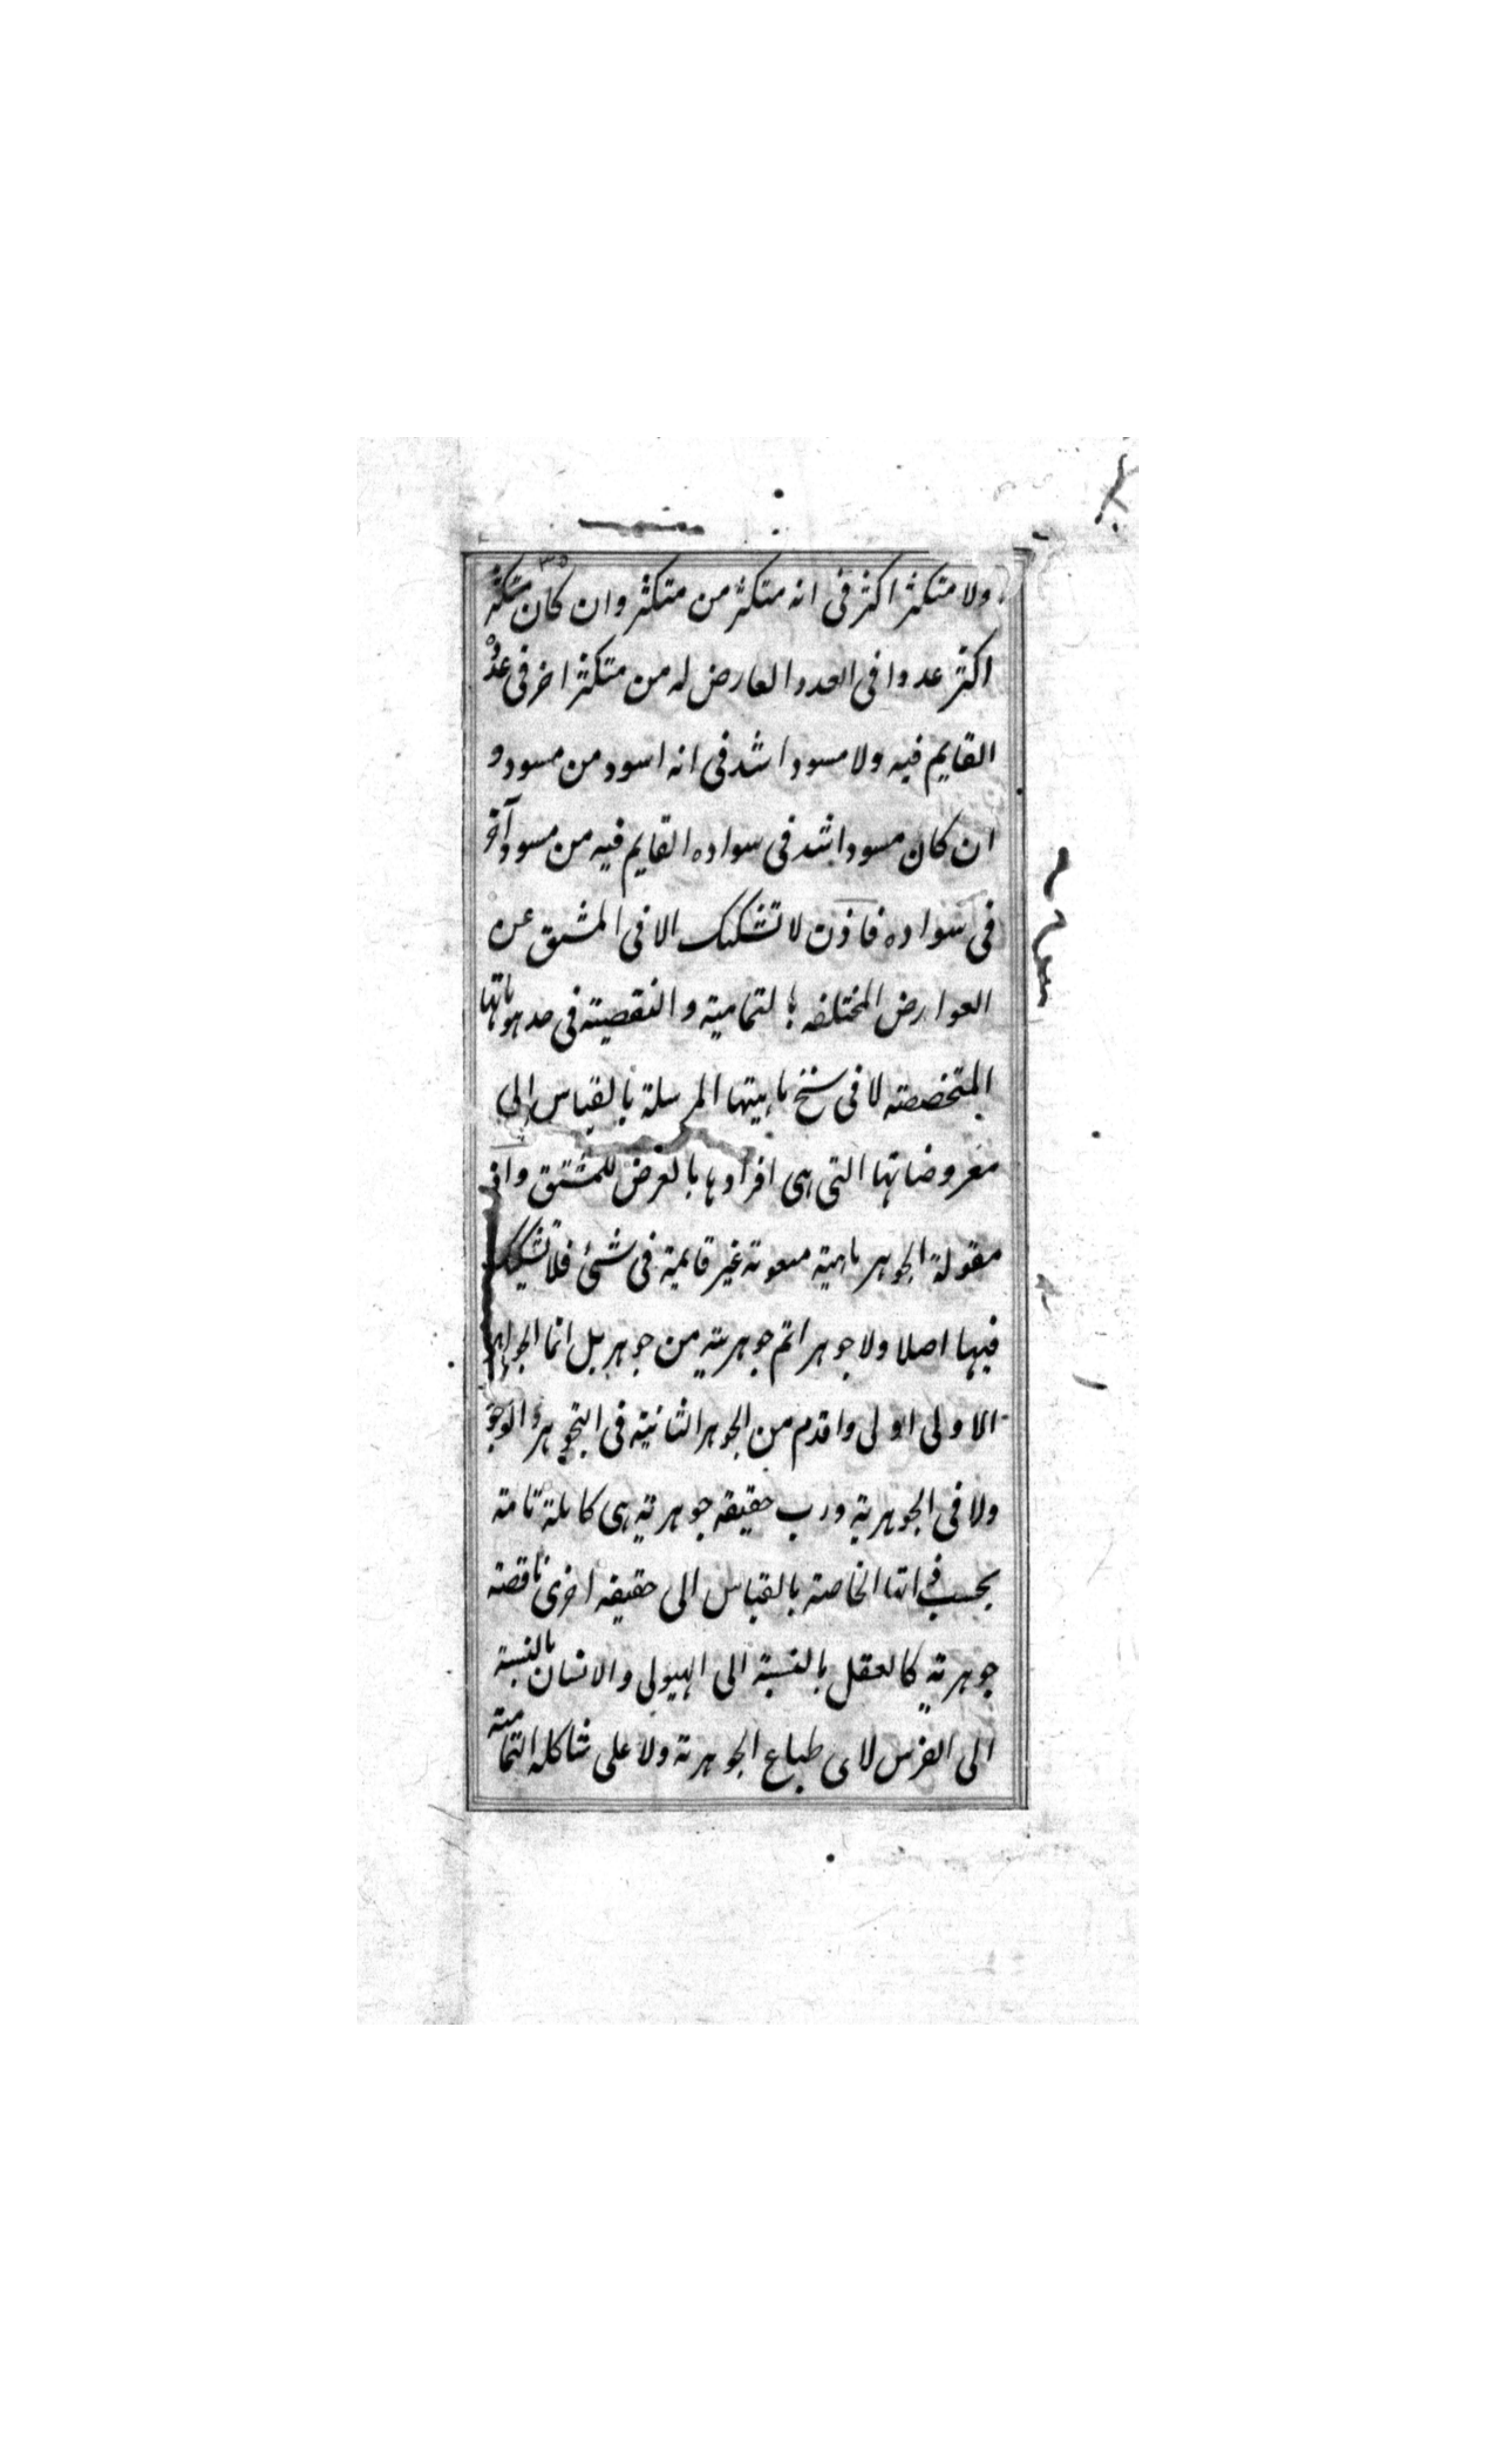 ولا متكثر اكثر فى انه متكثر من متكثر وان كان متكثر
اكثر عددا فى العدد العارض له من متكثر اخر فى عدده
القايم فيه ولا مسود اشد فى انه اسود من مسود و
ان كان مسود اشد فى سواده القايم فيه من مسود آخر
فى سواده فاذن لا تشكيك الا فى المشتق عن
العوارض المختلفه بالتمامية و النقصية فى حد هوياتها
المتخصصة لا فى سنخ ماهيتها المرسلة بالقياس الى
معروضاتها التى هى افرادها بالعرض للمشتق واذ
مقولة الجوهر ماهية منعوتة غير قائمة فى شئ فلا تشكيك
فيها اصلا ولا جوهر اتم جوهرية من جوهر بل انما الجواهر
الاولى اولى واقدم من الجوهر الثانية فى التجوهر و الوجو
ولا فى الجوهرية ورب حقيقه جوهرية هى كاملة تامة
بحسب ذاتها الخاصة بالقياس الى حقيقه اخرى ناقصة
جوهرية كالعقل بالنسبة الى الهيولى والانسان بالنسبة
الى الفرس لا فى طباع الجوهرية ولا على شاكله التمامية